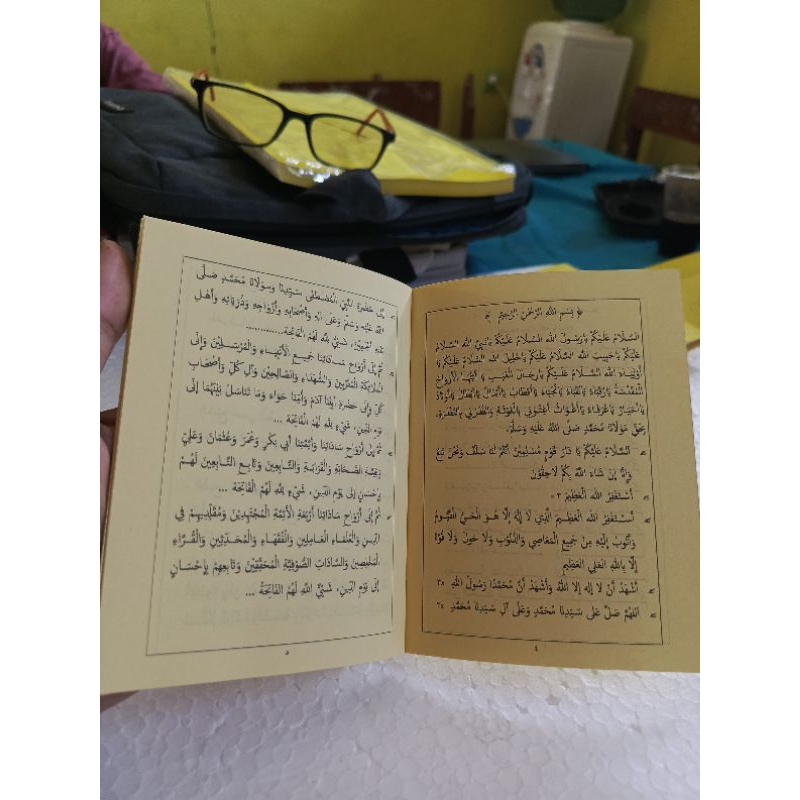 ﴿ بِسْمِ اللهِ الرَّحْمٰنِ الرَّحِيْمِ ﴾
السَّلَامُ عَلَيْكُمْ يَارَسُوْلَ اللهِ السَّلَامُ عَلَيْكُمْ يَانَبِيَّ اللهِ السَّلَامُ
عَلَيْكُمْ يَاحَبِيْبَ اللهِ السَّلَامُ عَلَيْكُمْ يَاخَلِيْلَ اللهِ السَّلَامُ عَلَيْكُمْ يَا
أَوْلِيَاءَ اللهِ السَّلَامُ عَلَيْكُمْ يَارِجَالَ الْغَيْبِ يَا أَيُّهَا الْأَرْوَاحُ
الْمُقَدَّسَةُ يَارُقَبَاءُ يَانُقَبَاءُ يَانُجَبَاءُ يَاأَقْطَابُ يَاأَبْدَالُ يَاأَوْتَادُ
يَاأَخْيَارُ يَاعُرَفَاءُ يَاأَغْوَاثُ أَغِيْثُوْنِيْ بِالْغَوْثَةِ وَانْظُرُنِيْ بِالنَّظْرَةِ،
بِحَقِّ مَوْلَانَا مُحَمَّدٍ صَلَّى اللهُ عَلَيْهِ وَسَلَّمَ
السَّلَامُ عَلَيْكُمْ يَا دَارَ قَوْمٍ مُسْلِمِيْنَ أَنْتُمْ لَنَا سَلَفٌ وَنَحْنُ تَبَعٌ
وَإِنَّا إِنْ شَاءَ اللهُ بِكُمْ لَاحِقُوْنَ
أَسْتَغْفِرُ اللهَ الْعَظِيْمَ ٣×
أَسْتَغْفِرُ اللهَ الْعَظِيْمَ الَّذِيْ لَا إِلٰهَ إِلَّا هُوَ الْحَيُّ الْقَيُّوْمُ
وَأَتُوْبُ إِلَيْهِ مِنْ جَمِيْعِ الْمَعَاصِيْ وَالذُّنُوْبِ وَلَا حَوْلَ وَلَا قُوَّةَ
إِلَّا بِاللهِ الْعَلِيِّ الْعَظِيْمِ
أَشْهَدُ أَنْ لَا إِلٰهَ إِلَّا اللهُ وَأَشْهَدُ أَنَّ مُحَمَّدًا رَسُوْلُ اللهِ ٣×
اَللّٰهُمَّ صَلِّ عَلَى سَيِّدِنَا مُحَمَّدٍ وَعَلَى آلِ سَيِّدِنَا مُحَمَّدٍ ٣×
٤
حَضْرَةِ النَّبِيِّ الْمُصْطَفَى سَيِّدِنَا وَمَوْلَانَا مُحَمَّدٍ صَلَّى
اللهُ عَلَيْهِ وَسَلَّمَ وَعَلَى آلِهِ وَأَصْحَابِهِ وَأَزْوَاجِهِ وَذُرِّيَّاتِهِ وَأَهْلِ
أَجْمَعِيْنَ، شَيْءٌ لِلّٰهِ لَهُمُ الْفَاتِحَةُ...........
ثُمَّ إِلَى أَرْوَاحِ سَادَاتِنَا جَمِيْعِ الْأَنْبِيَاءِ وَالْمُرْسَلِيْنَ وَإِلَى
الْمَلَائِكَةِ الْمُقَرَّبِيْنَ وَالشُّهَدَاءِ وَالصَّالِحِيْنَ وَآلِ كُلٍّ وَأَصْحَابِ
كُلٍّ وَإِلَى حَضْرَةِ أَبِيْنَا آدَمَ وَأُمِّنَا حَوَاءَ وَمَا تَنَاسَلَ بَيْنَهُمَا إِلَى
يَوْمِ الدِّيْنِ، شَيْءٌ لِلّٰهِ لَهُمُ الْفَاتِحَةُ ...
ثُمَّ إِلَى أَرْوَاحِ سَادَاتِنَا وَأَئِمَّتِنَا أَبِيْ بَكْرٍ وَعُمَرَ وَعُثْمَانَ وَعَلِيٍّ
وَبَقِيَّةِ الصَّحَابَةِ وَالْقَرَابَةِ وَالتَّابِعِيْنَ وَتَابِعِ التَّابِعِيْنَ لَهُمْ
بِإِحْسَانٍ إِلَى يَوْمِ الدِّيْنِ، شَيْءٌ لِلّٰهِ لَهُمُ الْفَاتِحَةُ ...
ثُمَّ إِلَى أَرْوَاحِ سَادَاتِنَا أَرْبَعَةِ الْأَئِمَّةِ الْمُجْتَهِدِيْنَ وَمُقَلِّدِيْهِمْ فِي
الدِّيْنِ وَالْعُلَمَاءِ الْعَامِلِيْنَ وَالْفُقَهَاءِ وَالْمُحَدِّثِيْنَ وَالْقُرَّاءِ
الْمُخْلِصِيْنَ وَالسَّادَاتِ الصُّوْفِيَّةِ الْمُحَقِّقِيْنَ وَتَابِعِهِمْ بِإِحْسَانٍ
إِلَى يَوْمِ الدِّيْنِ، شَيْءٌ لِلّٰهِ لَهُمُ الْفَاتِحَةُ ...
٥